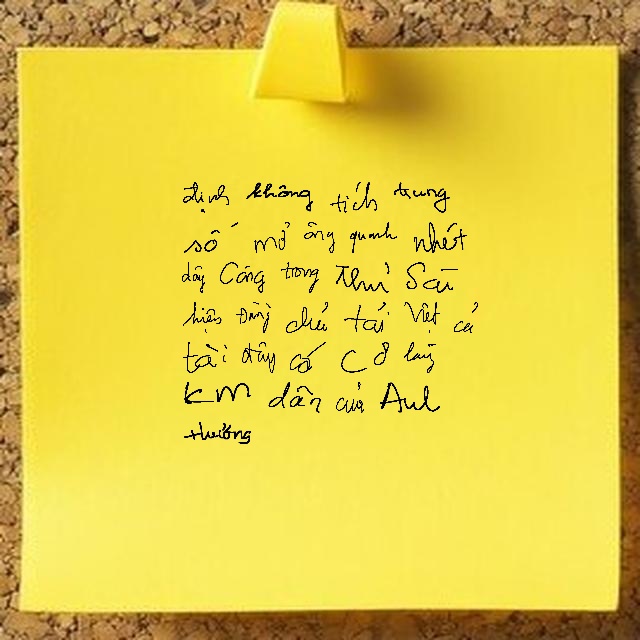 định không tích trung
số mở ông quanh nhét
dây Công trong Thì Sài
hiện Đảng chủ tái Việt cả
tài đây có C ở lạng
KM dân của Aul
thường